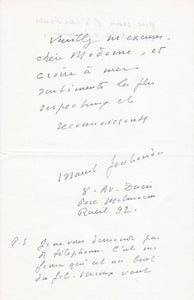 Veuillez m'excuser,
chère Madame, et
croire à mes
sentiments les plus
respectueux et
reconnaissants
Marcel Jouhandeau
8. Av.
Parc Malmaison
Rueil 92.
P.S Je ne vous demande pas
de téléphoner. C'est ma
femme qui est au bout
du fil. Mieux vaut